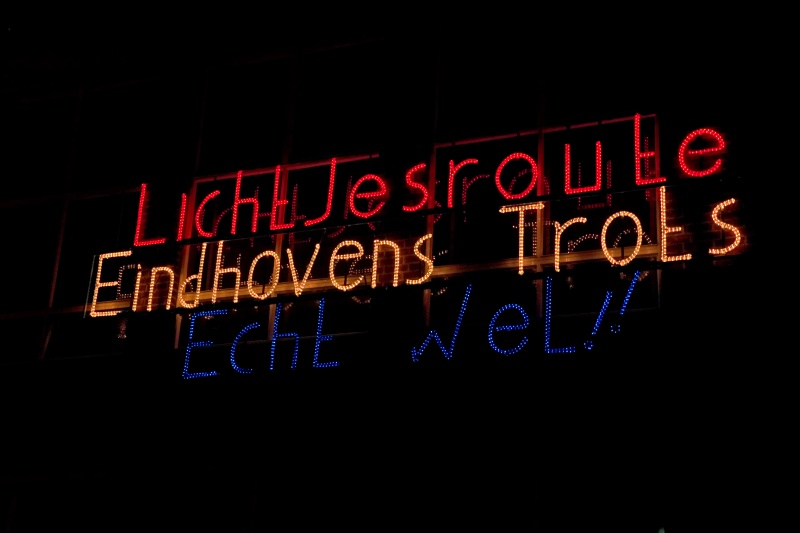 Lichtjesroute
Eindhovens Trots
Echt Wel!!